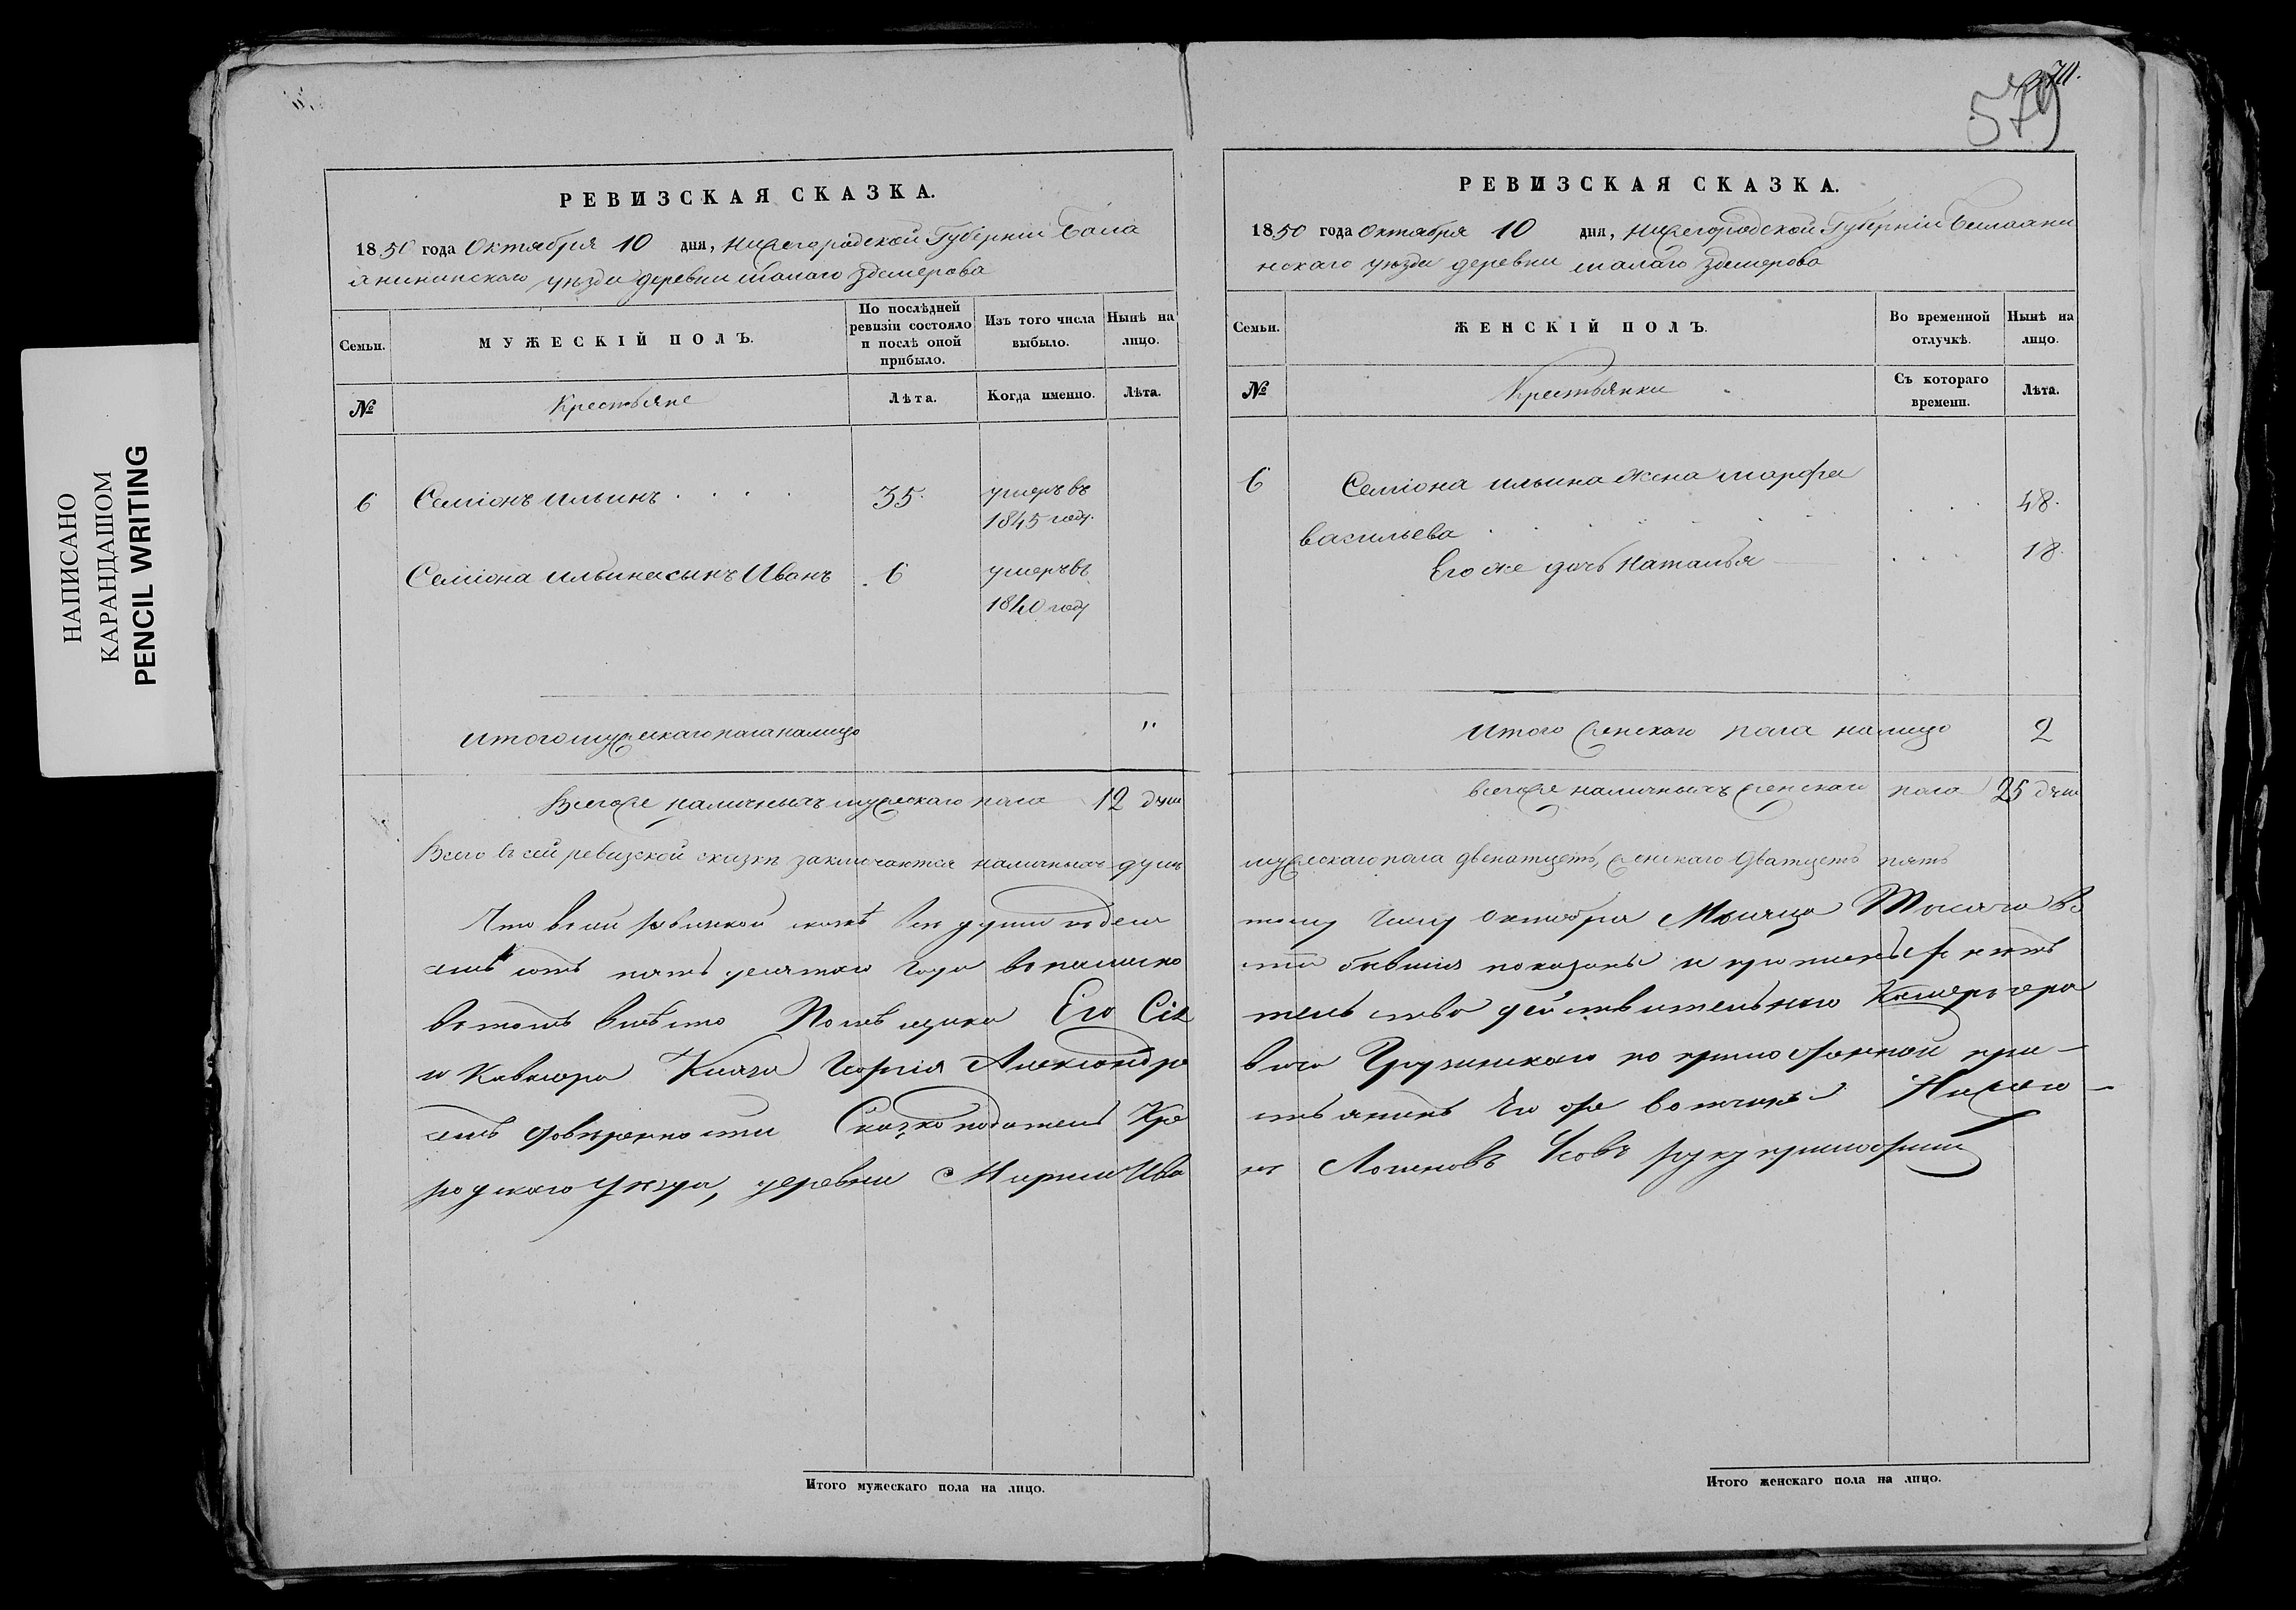 НАПИСАНО
КАРАНДАШОМ
PENCIL WRITING
579
РЕВИЗСКАЯ СКАЗКА.
1850 года Октября 10 дня, Нижегородской Губерніи Бала
хнинского уѣзда деревни малаго
Семьи.
МУЖЕСКІЙ ПОЛЪ.
По послѣдней ревизіи состояло и послѣ оной прибыло.
Изъ того числа выбыло.
Нынѣ на лицо.
№
Крестьяне
Лѣта.
Когда именно.
Лѣта.
6 Семіонъ ильинъ . . . . 35. умеръ въ
1845 году.
Семіона ильина сынъ Иванъ . 6 умеръ въ
1840 году
итого мужескаго пола налицо "
Всегоже наличныхъ мужескаго пола 12 душ
Всего в сей ревизской сказке заключаются наличныхъ душъ
Что в сей сказкѣ все души
пять десятаго Года
Помѣщика Его Сія
и Кавалера Князя Георгія Александро
довѣренности Сказкоподатель Кре
родскаго Уѣзда, деревни Ива
Итого мужескаго пола на лицо.
РЕВИЗСКАЯ СКАЗКА.
1850 года Октября 10 дня, Нижегородской Губерніи
нскаго уѣзда деревни малаго
Семьи.
ЖЕНСКІЙ ПОЛЪ.
Во временной отлучкѣ.
Нынѣ на лицо.
№
Крестьянки
Съ котораго времени.
Лѣта.
6 Семіона ильина жена марфа
васильева . . . 48.
Его же дочь Наталья . . . 18.
Итого женскаго пола налицо 2
всегоже наличныхъ женскаго пола 25 душ
мужескаго пола двенатцеть, женскаго Дватцеть пять
тому Числу Октября Мѣсяца Тысяча во
показаны и
тельство действительнаго Камергера
вича Грузинскаго по приложенной при
Его же вотчины Нижего-
нъ Логиновъ Усовъ руку приложилъ
Итого женскаго пола на лицо.